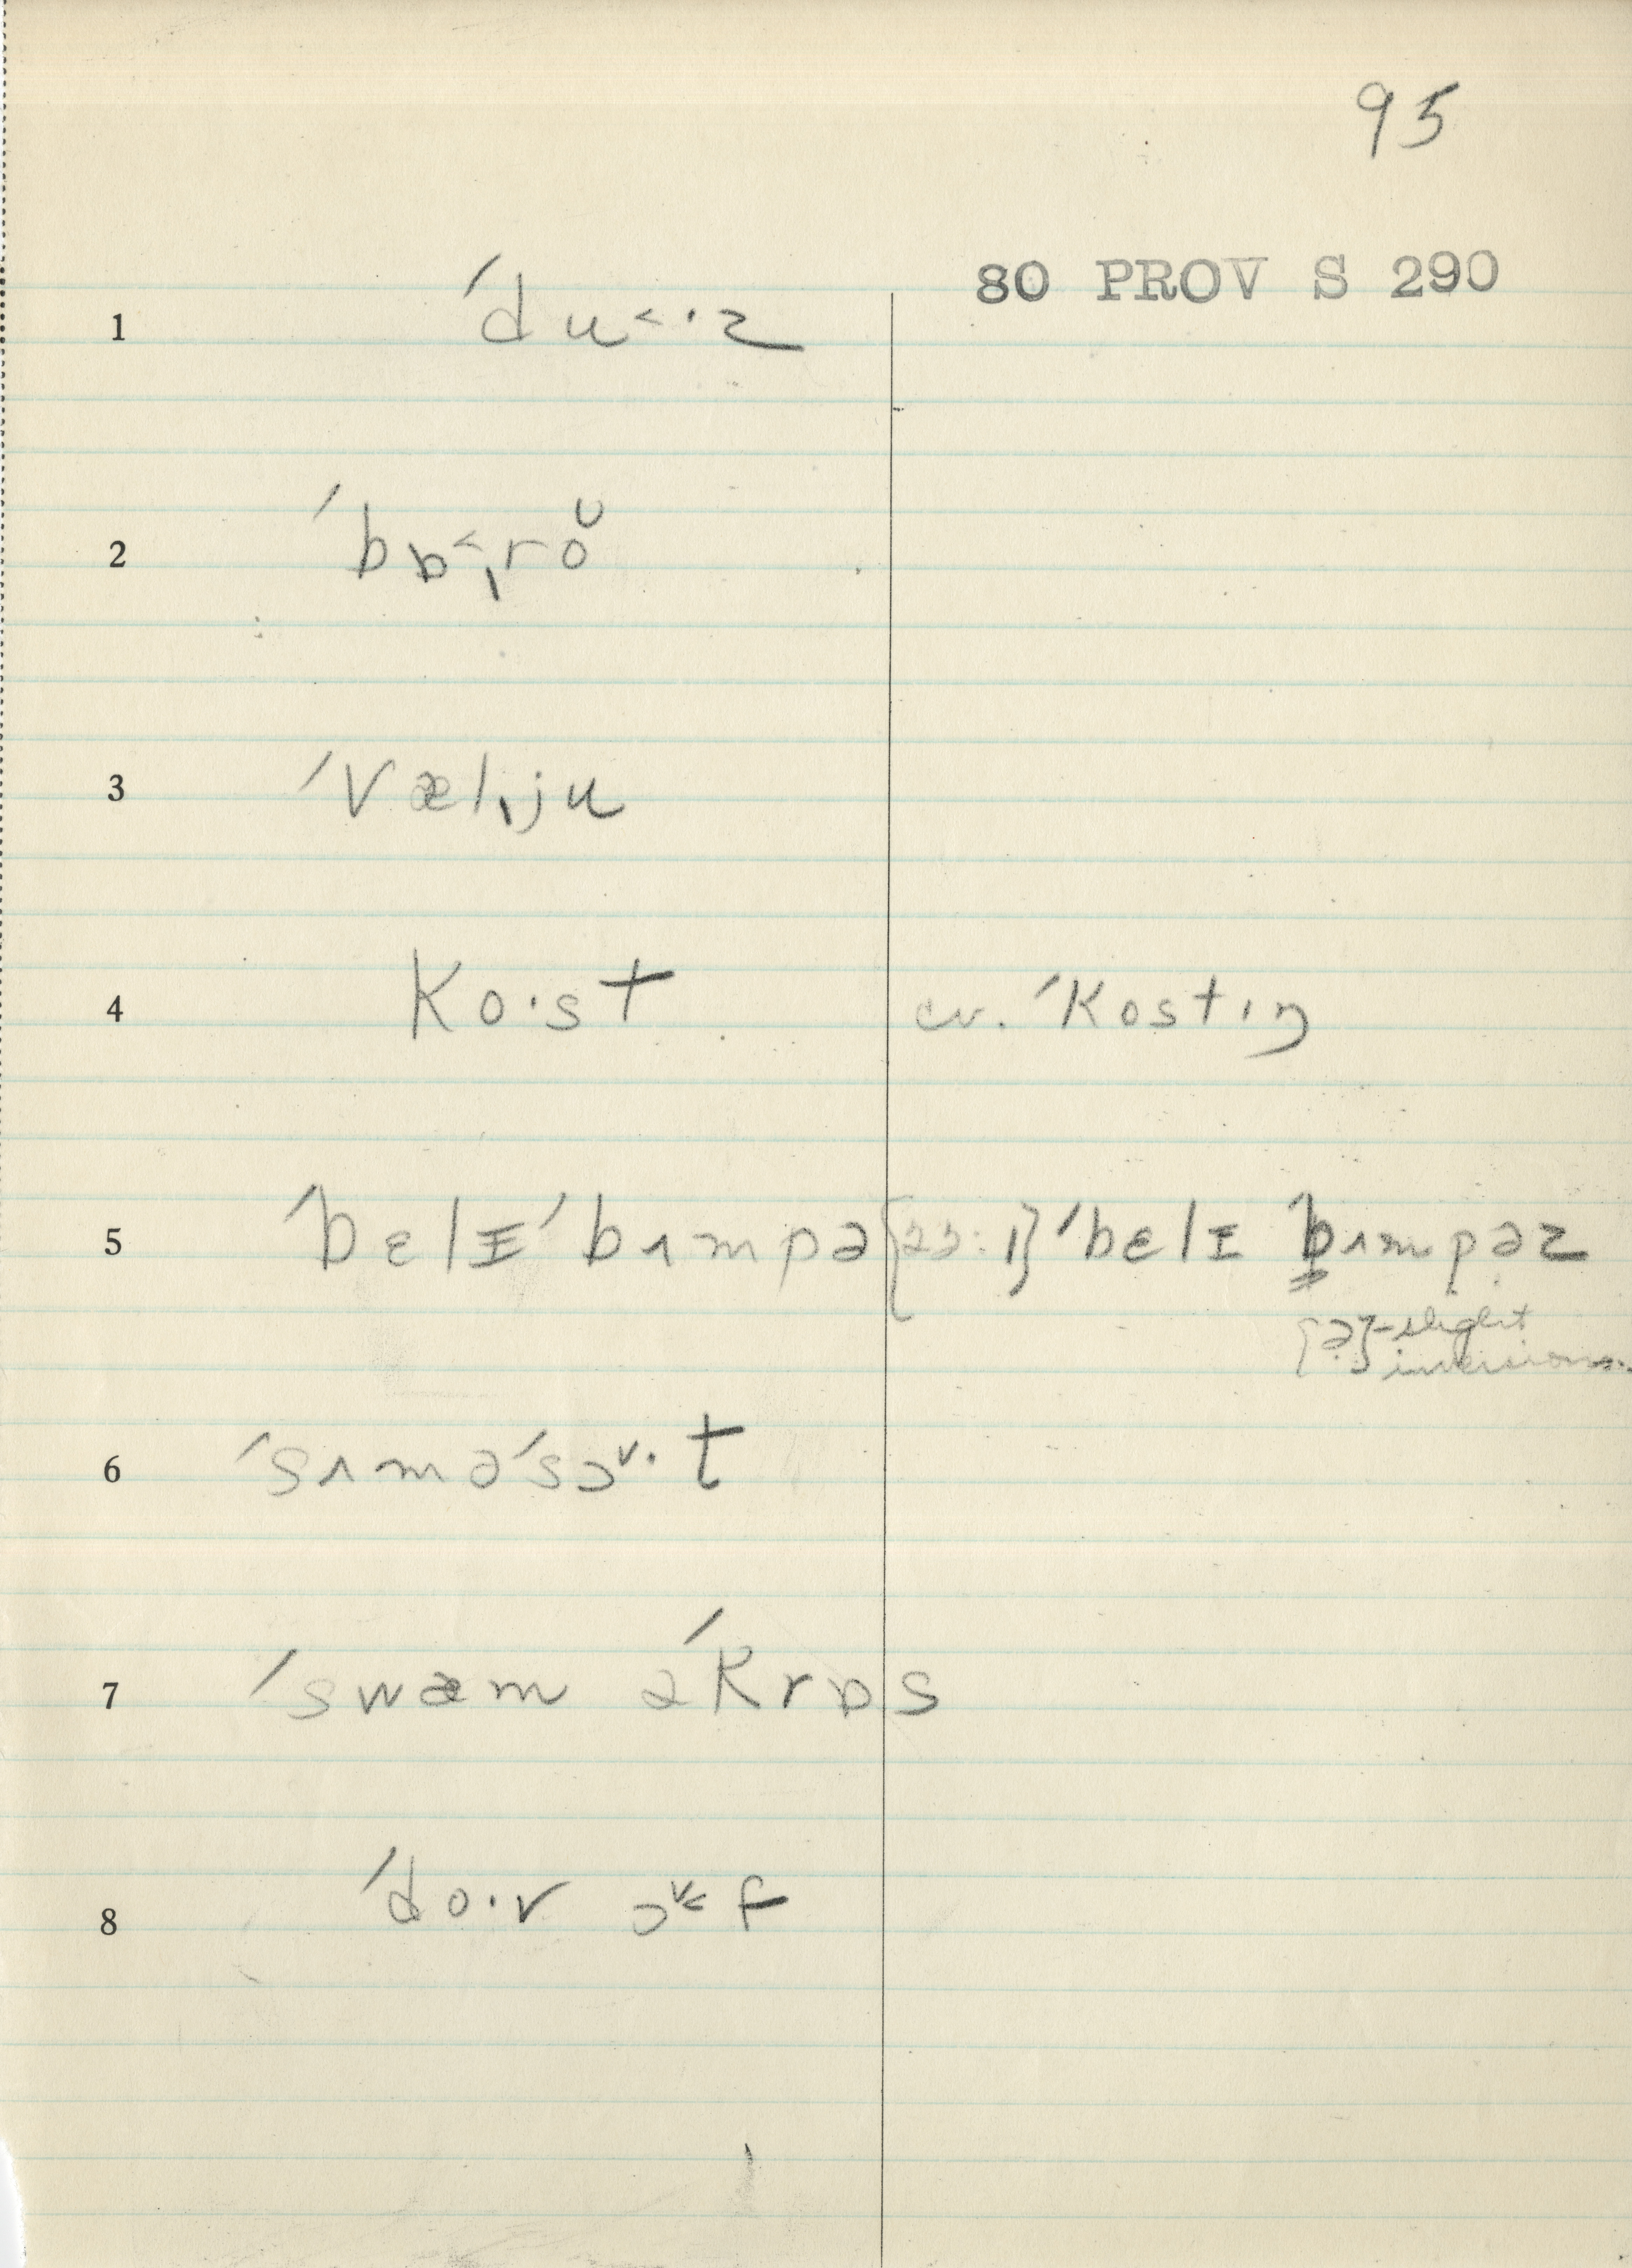 95
80 PROV S 290
1 ˈdu˂·z
2 ˈbɒ˂ˌroᴜ
3 ˈvælˌju
4 ko·st cv. ˈkostɪŋ
5 ˈbɛlɪ ˈbʌmpə {23:1} ˈbɛlɪ bʌmpəz
{ə}-slight
inversion
6 ˈsʌməˈsɔ˅·t
7 ˈswæm əˈkrɒs
8 ˈdo·v ɔ˅˂f